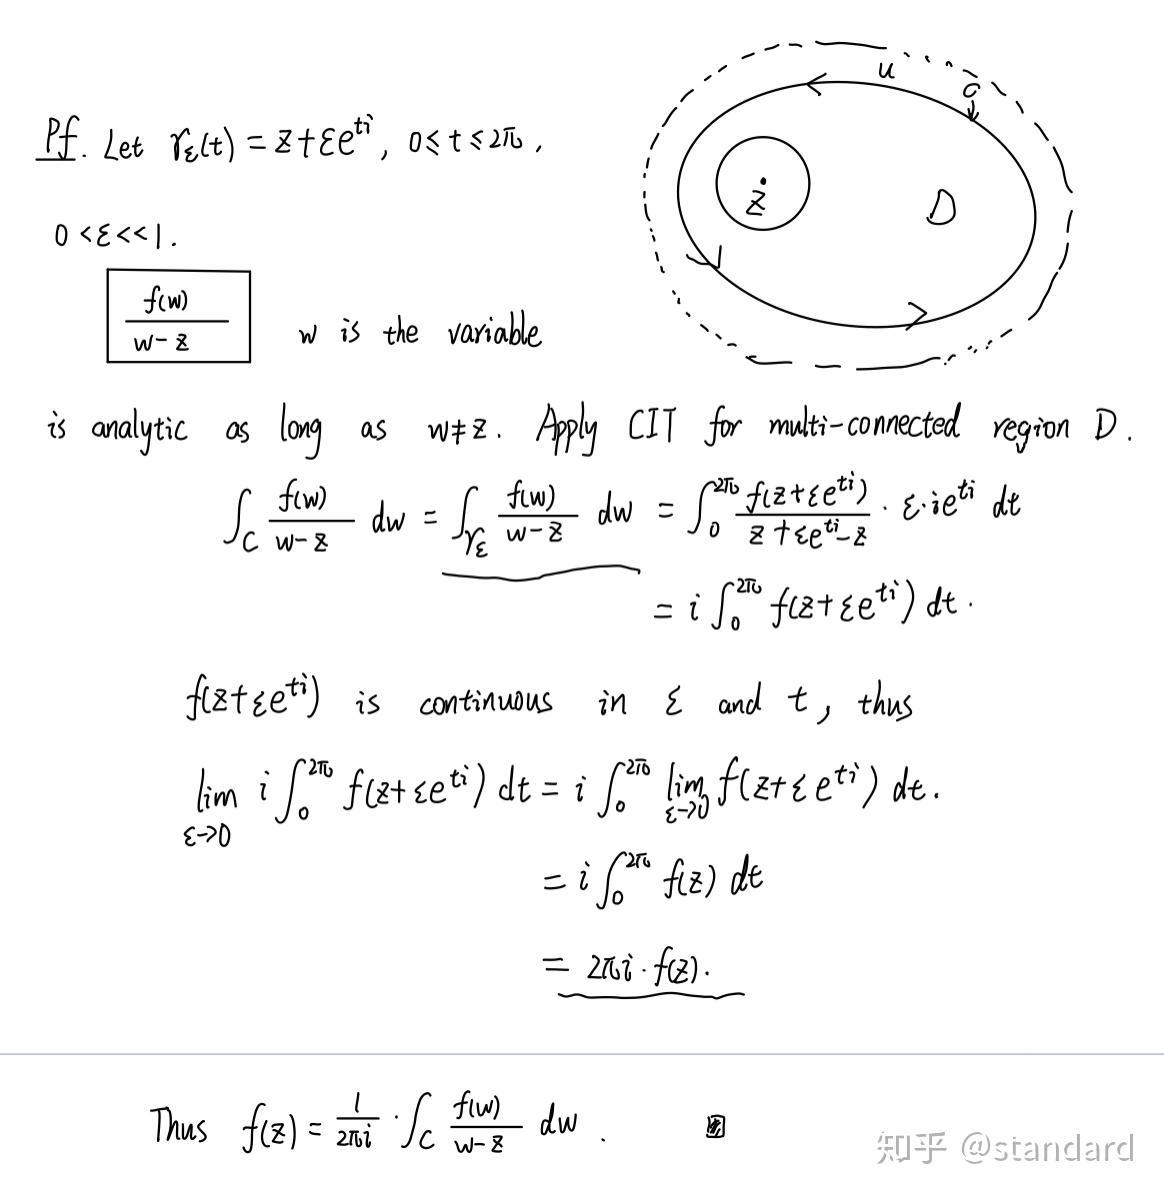 Pf. Let γ_ε(t) = z+εe^{ti}, 0≤t≤2π,
u
C
z
D
0<ε<<1.
f(w)/(w-z) w is the variable
is analytic as long as w≠z. Apply CIT for multi-connected region D.
∫_C f(w)/(w-z) dw = ∫_{γ_ε} f(w)/(w-z) dw = ∫_0^{2π} f(z+εe^{ti})/(z+εe^{ti}-z) · ε·ie^{ti} dt
= i ∫_0^{2π} f(z+εe^{ti}) dt.
f(z+εe^{ti}) is continuous in ε and t, thus
lim_{ε→0} i ∫_0^{2π} f(z+εe^{ti}) dt = i ∫_0^{2π} lim_{ε→0} f(z+εe^{ti}) dt.
= i ∫_0^{2π} f(z) dt
= 2πi·f(z).
Thus f(z) = 1/(2πi) · ∫_C f(w)/(w-z) dw.
知乎 @standard